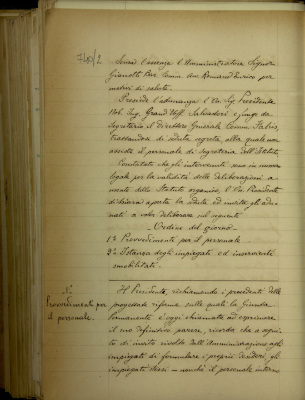 740/2
l'assenza l'Amministratore Signor
Giannotti Bar. Comm. Avv. Romano per
motivi di salute.
Presiede l'adunanza l'On. Sig. Presidente
Nob. Ing. Grand'Uff. Salvadori e funge da
Segretario il Direttore Generale Comm. Fabris,
trattandosi di seduta segreta, alla quale non
assiste il personale di Segreteria dell'Istituto.
Constatato che gli intervenuti sono in numero
legale per la validità delle deliberazioni a
senso dello Statuto organico, l'On. Presidente
dichiara aperta la seduta ed invita gli adu-
nati a voler deliberare sul seguente
Ordine del giorno
1° Provvedimenti per il personale
2° Istanza degli impiegati ed inservienti
smobilitati.
N. 1
Provvedimenti per
il personale.
Il Presidente, richiamando i precedenti delle
progettate riforme sulle quali la Giunta
permanente è oggi chiamata ad esprimere
il suo definitivo parere, ricorda che a segui-
to di invito rivolto dall'Amministrazione agli
impiegati di formulare i proprii desideri, gli
impiegati stessi - nonchè il personale interno